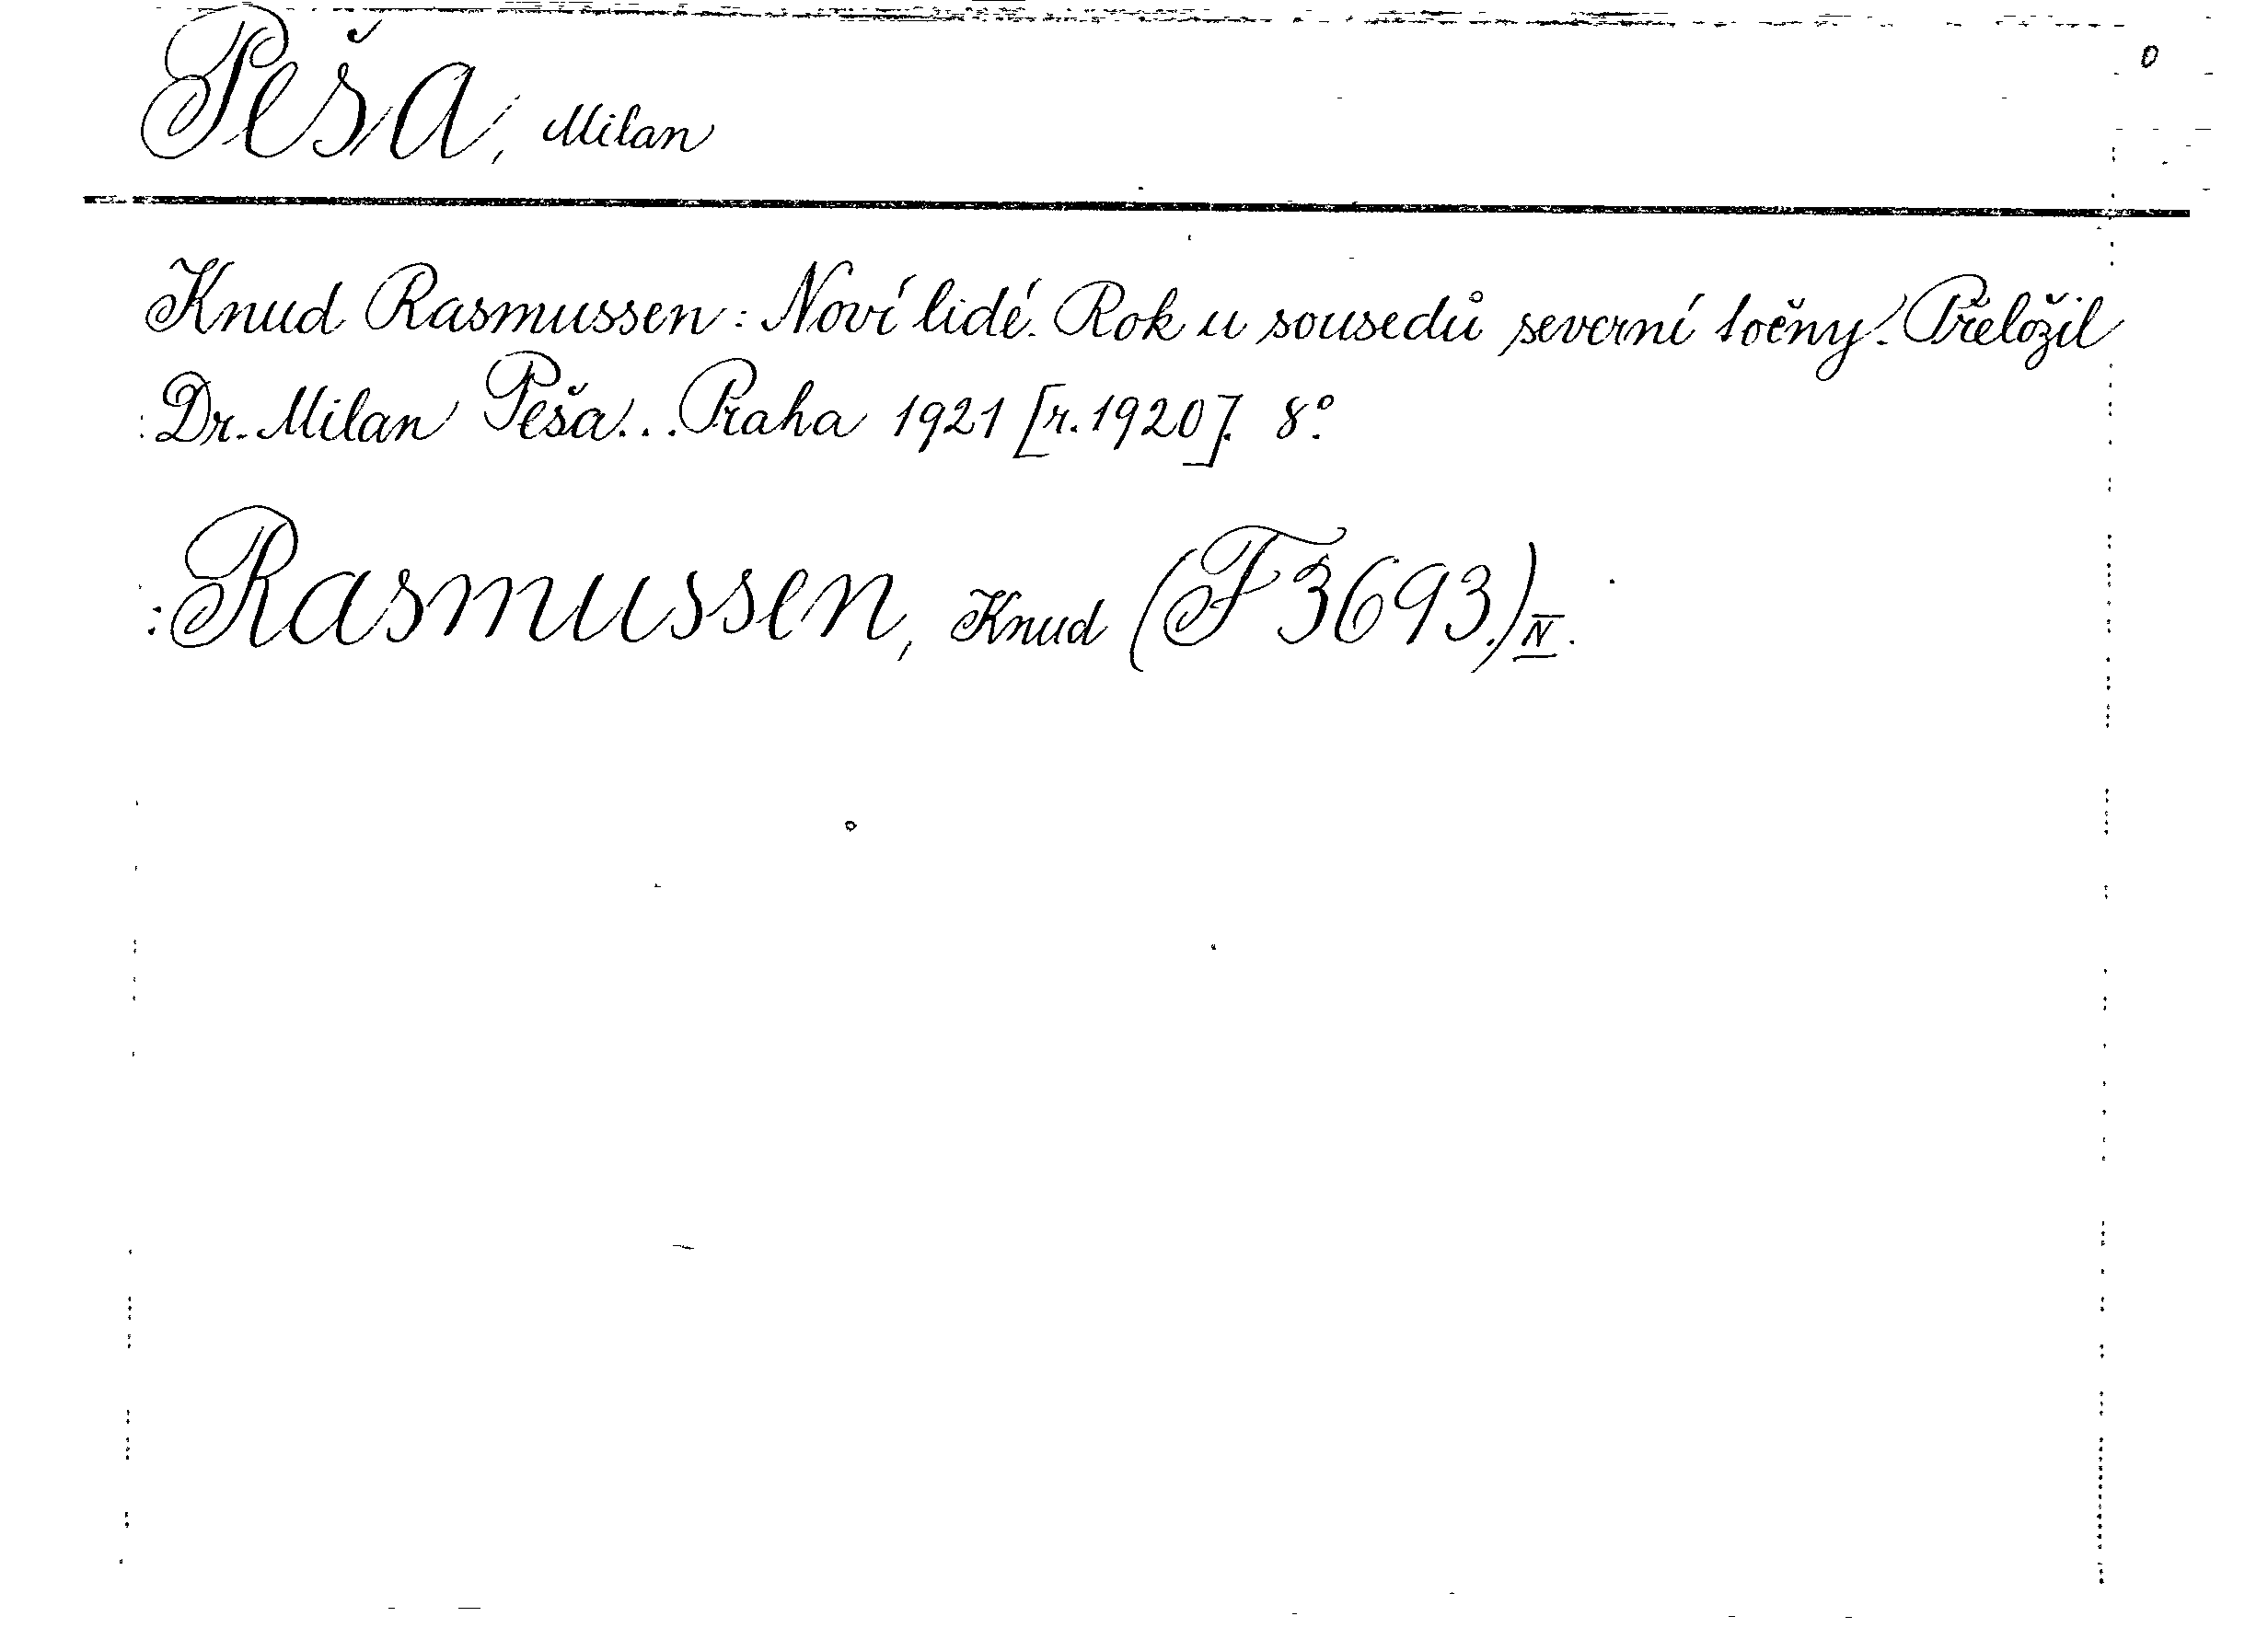 Peša, Milan
Knud Rasmussen: Noví lidé. Rok u sousedů severní točny. Přeložil
Dr. Milan Peša... Praha 1921 [r. 1920]. 8°.
Rasmussen, Knud (F 3693.) IV.